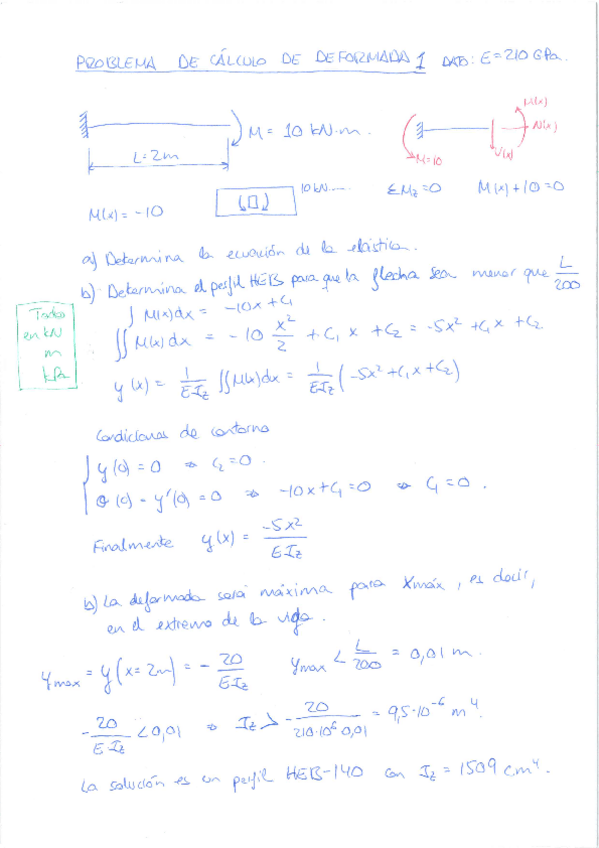 PROBLEMA DE CÁLCULO DE DEFORMADA 1 DATO: E=210 GPa.
M = 10 kN·m.
L=2m
M(x)
N(x)
V(x)
M=10
M(x) = -10
10 kN
ΣM_z=0 M(x)+10=0
a) Determina la ecuación de la elástica.
b) Determina el perfil HEB para que la flecha sea menor que L/200
Todo en kN m kPa
∫ M(x)dx = -10x + C₁
∬ M(x)dx = -10 x²/2 + C₁ x + C₂ = -5x² + C₁x + C₂
y(x) = 1/EI_z ∬M(x)dx = 1/EI_z (-5x² + C₁x + C₂)
Condiciones de contorno
y(0) = 0 ⇒ C₂=0.
θ(0) = y'(0) = 0 ⇒ -10x + C₁ = 0 ⇒ C₁ = 0.
Finalmente y(x) = -5x²/EI_z
b) La deformada será máxima para Xmáx, es decir,
en el extremo de la viga.
y_max = y(x=2m) = - 20/EI_z y_max < L/200 = 0,01 m.
- 20/EI_z < 0,01 ⇒ I_z > - 20/210·10⁶ 0,01 = 9,5·10⁻⁶ m⁴.
La solución es un perfil HEB-140 con I_z = 1509 cm⁴.